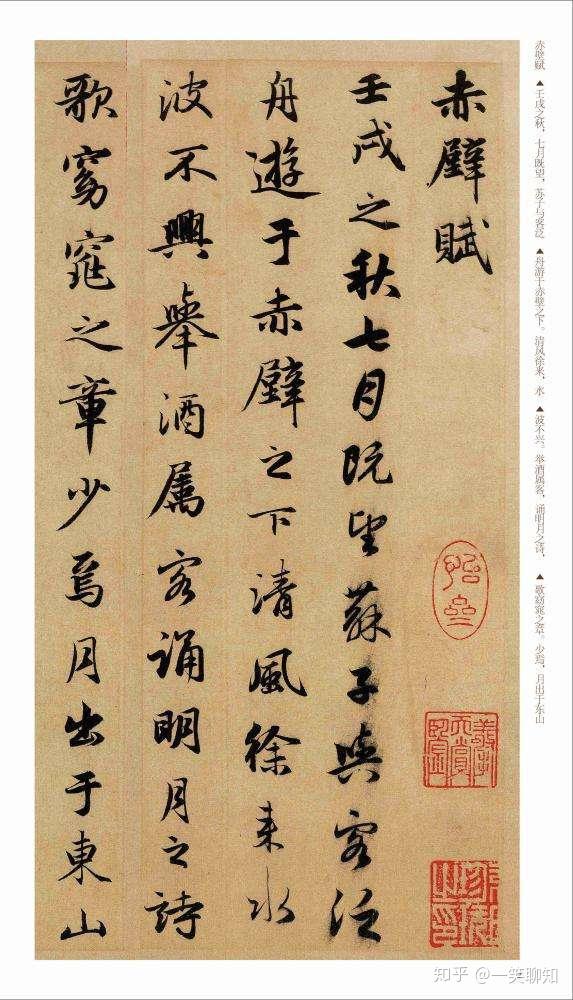 赤壁賦
壬戌之秋七月既望蘇子與客泛
舟遊于赤壁之下清風徐来水
波不興舉酒属客誦明月之詩
歌窈窕之章少焉月出于東山
赤壁赋 ▲壬戌之秋，七月既望，苏子与客泛 ▲舟游于赤壁之下。清风徐来，水 ▲波不兴。举酒属客，诵明月之诗， ▲歌窈窕之章。少焉，月出于东山
知乎 @一笑聊知